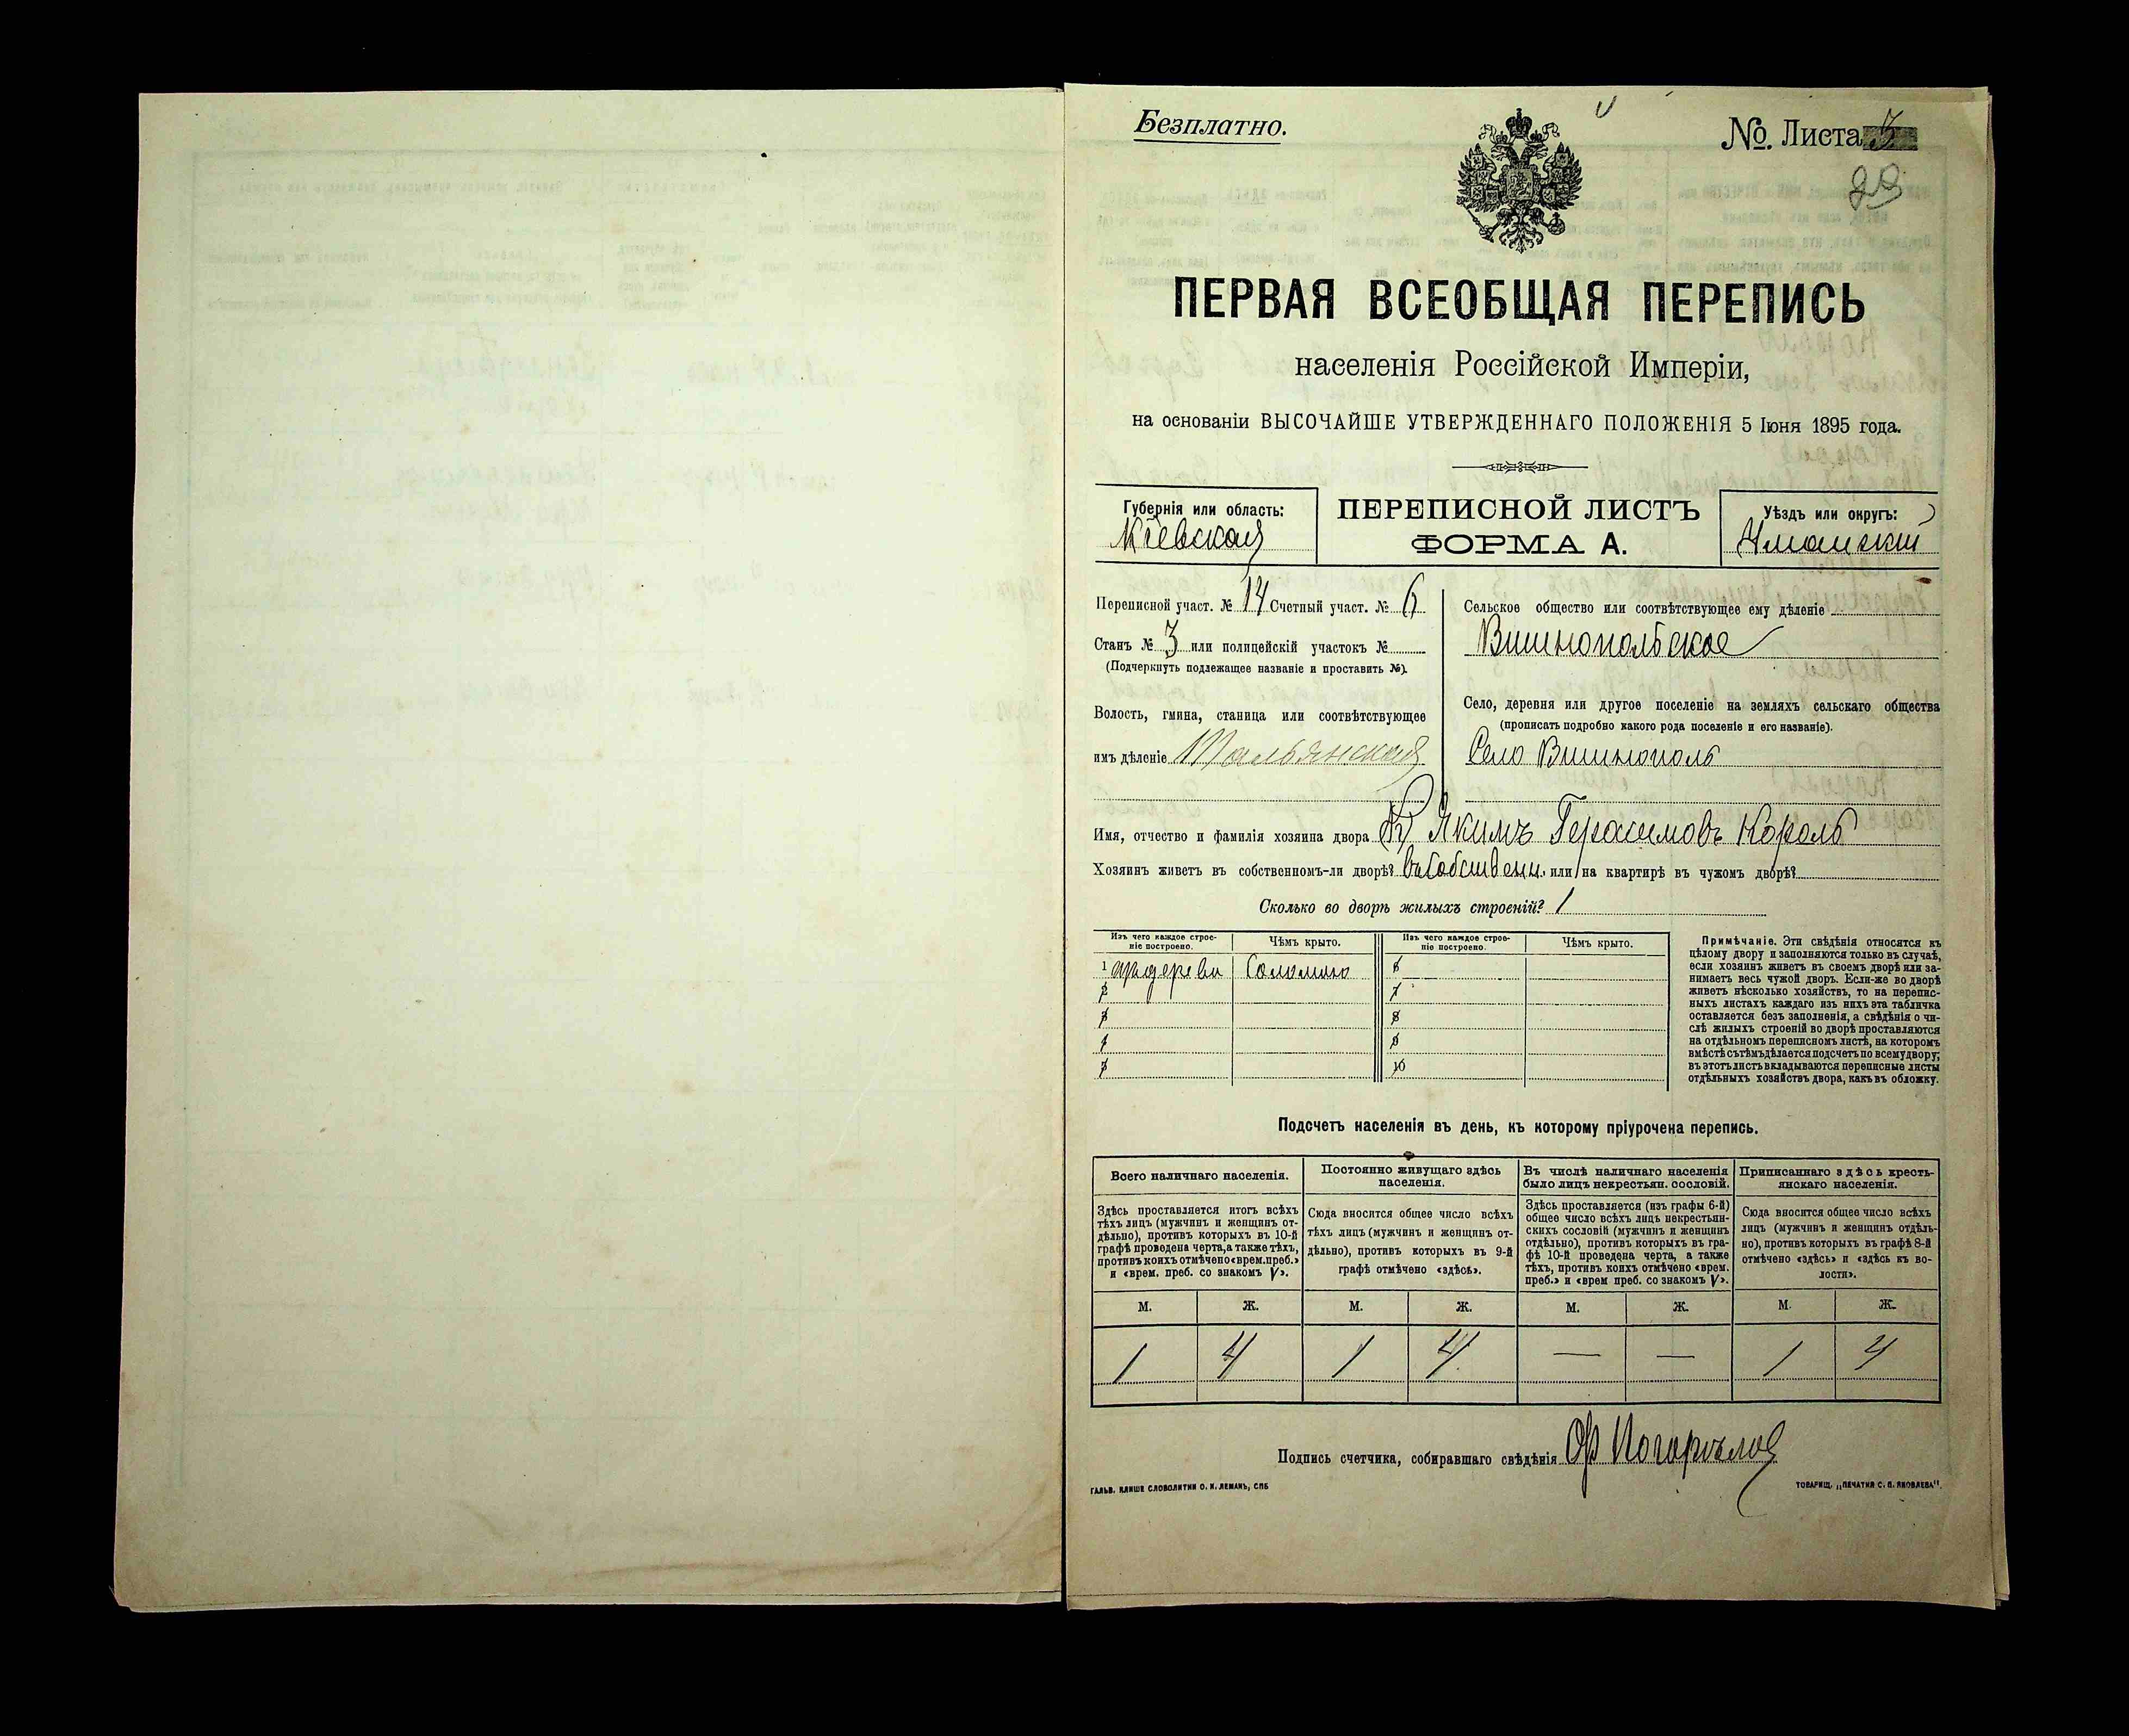 Безплатно.
№. Листа 3
29
ПЕРВАЯ ВСЕОБЩАЯ ПЕРЕПИСЬ
населенія Россійской Имперіи,
на основаніи ВЫСОЧАЙШЕ УТВЕРЖДЕННАГО ПОЛОЖЕНІЯ 5 Іюня 1895 года.
Губернія или область:
Кіевская
ПЕРЕПИСНОЙ ЛИСТЪ
ФОРМА А.
Уѣздъ или округъ:
Уманскій
Переписной участ. № 14 Счетный участ. № 6
Станъ № 3 или полицейскій участокъ №
(Подчеркнуть подлежащее названіе и проставить №).
Волость, гмина, станица или соотвѣтствующее
имъ дѣленіе Тальянская
Сельское общество или соотвѣтствующее ему дѣленіе
Вишнопольское
Село, деревня или другое поселеніе на земляхъ сельскаго общества
(прописать подробно какого рода поселеніе и его названіе).
Село Вишнополь
Имя, отчество и фамилія хозяина двора Якимъ Герасимовъ Король
Хозяинъ живетъ въ собственномъ-ли дворѣ? въ собственн. или на квартирѣ въ чужомъ дворѣ?
Сколько во дворѣ жилыхъ строеній? 1
Изъ чего каждое строе-
ніе построено.
Чѣмъ крыто.
Изъ чего каждое строе-
ніе построено.
Чѣмъ крыто.
1 Соломою 6
2 7
3 8
4 9
5 10
Примѣчаніе. Эти свѣдѣнія относятся къ
цѣлому двору и заполняются только въ случаѣ,
если хозяинъ живетъ въ своемъ дворѣ или за-
нимаетъ весь чужой дворъ. Если-же во дворѣ
живетъ нѣсколько хозяйствъ, то на перепис-
ныхъ листахъ каждаго изъ нихъ эта табличка
оставляется безъ заполненія, а свѣдѣнія о чи-
слѣ жилыхъ строеній во дворѣ проставляются
на отдѣльномъ переписномъ листѣ, на которомъ
вмѣстѣ съ тѣмъ дѣлается подсчетъ по всему двору;
въ этотъ листъ вкладываются переписные листы
отдѣльныхъ хозяйствъ двора, какъ въ обложку.
Подсчетъ населенія въ день, къ которому пріурочена перепись.
Всего наличнаго населенія.
Постоянно живущаго здѣсь
населенія.
Въ числѣ наличнаго населенія
было лицъ некрестьян. сословій.
Приписаннаго здѣсь кресть-
янскаго населенія.
Здѣсь проставляется итогъ всѣхъ
тѣхъ лицъ (мужчинъ и женщинъ от-
дѣльно), противъ которыхъ въ 10-й
графѣ проведена черта, а также тѣхъ,
противъ коихъ отмѣчено «врем. преб.»
и «врем. преб. со знакомъ V».
Сюда вносится общее число всѣхъ
тѣхъ лицъ (мужчинъ и женщинъ от-
дѣльно), противъ которыхъ въ 9-й
графѣ отмѣчено «здѣсь».
Здѣсь проставляется (изъ графы 6-й)
общее число всѣхъ лицъ некрестьян-
скихъ сословій (мужчинъ и женщинъ
отдѣльно), противъ которыхъ въ гра-
фѣ 10-й проведена черта, а также
тѣхъ, противъ коихъ отмѣчено «врем.
преб.» и «врем преб. со знакомъ V».
Сюда вносится общее число всѣхъ
лицъ (мужчинъ и женщинъ отдѣль-
но), противъ которыхъ въ графѣ 8-й
отмѣчено «здѣсь» и «здѣсь къ во-
лости».
М. Ж. М. Ж. М. Ж. М. Ж.
1 4 1 4 — — 1 4
Подпись счетчика, собиравшаго свѣдѣнія
ГАЛЬВ. КЛИШЕ СЛОВОЛИТНИ О. И. ЛЕМАНЪ, СПБ
ТОВАРИЩ. „ПЕЧАТНЯ С. П. ЯКОВЛЕВА".